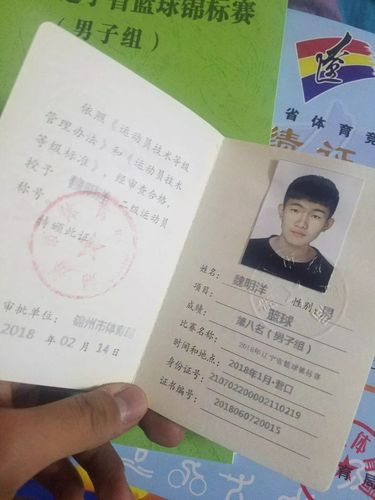 宁省篮球锦标赛
（男子组）
省体育竞
绩证
依照《运动员技术等级
管理办法》和《运动员技术
等级标准》，经审查合格，
授予 魏明洋 二级运动员
称号。
特颁此证。
审批单位：锦州市体育局
2018 年 02 月 14 日
姓名：魏明洋 性别：男
项目：篮球
成绩：第八名（男子组）
比赛名称：2018年辽宁省篮球锦标赛
时间和地点：2018年1月·营口
身份证号：210702200002110219
证书编号：2018060720015